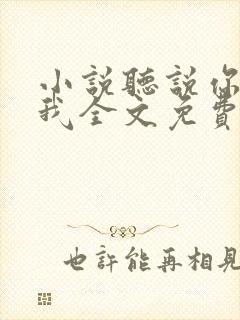 小說聽說你
我全文免費
也許能再相見